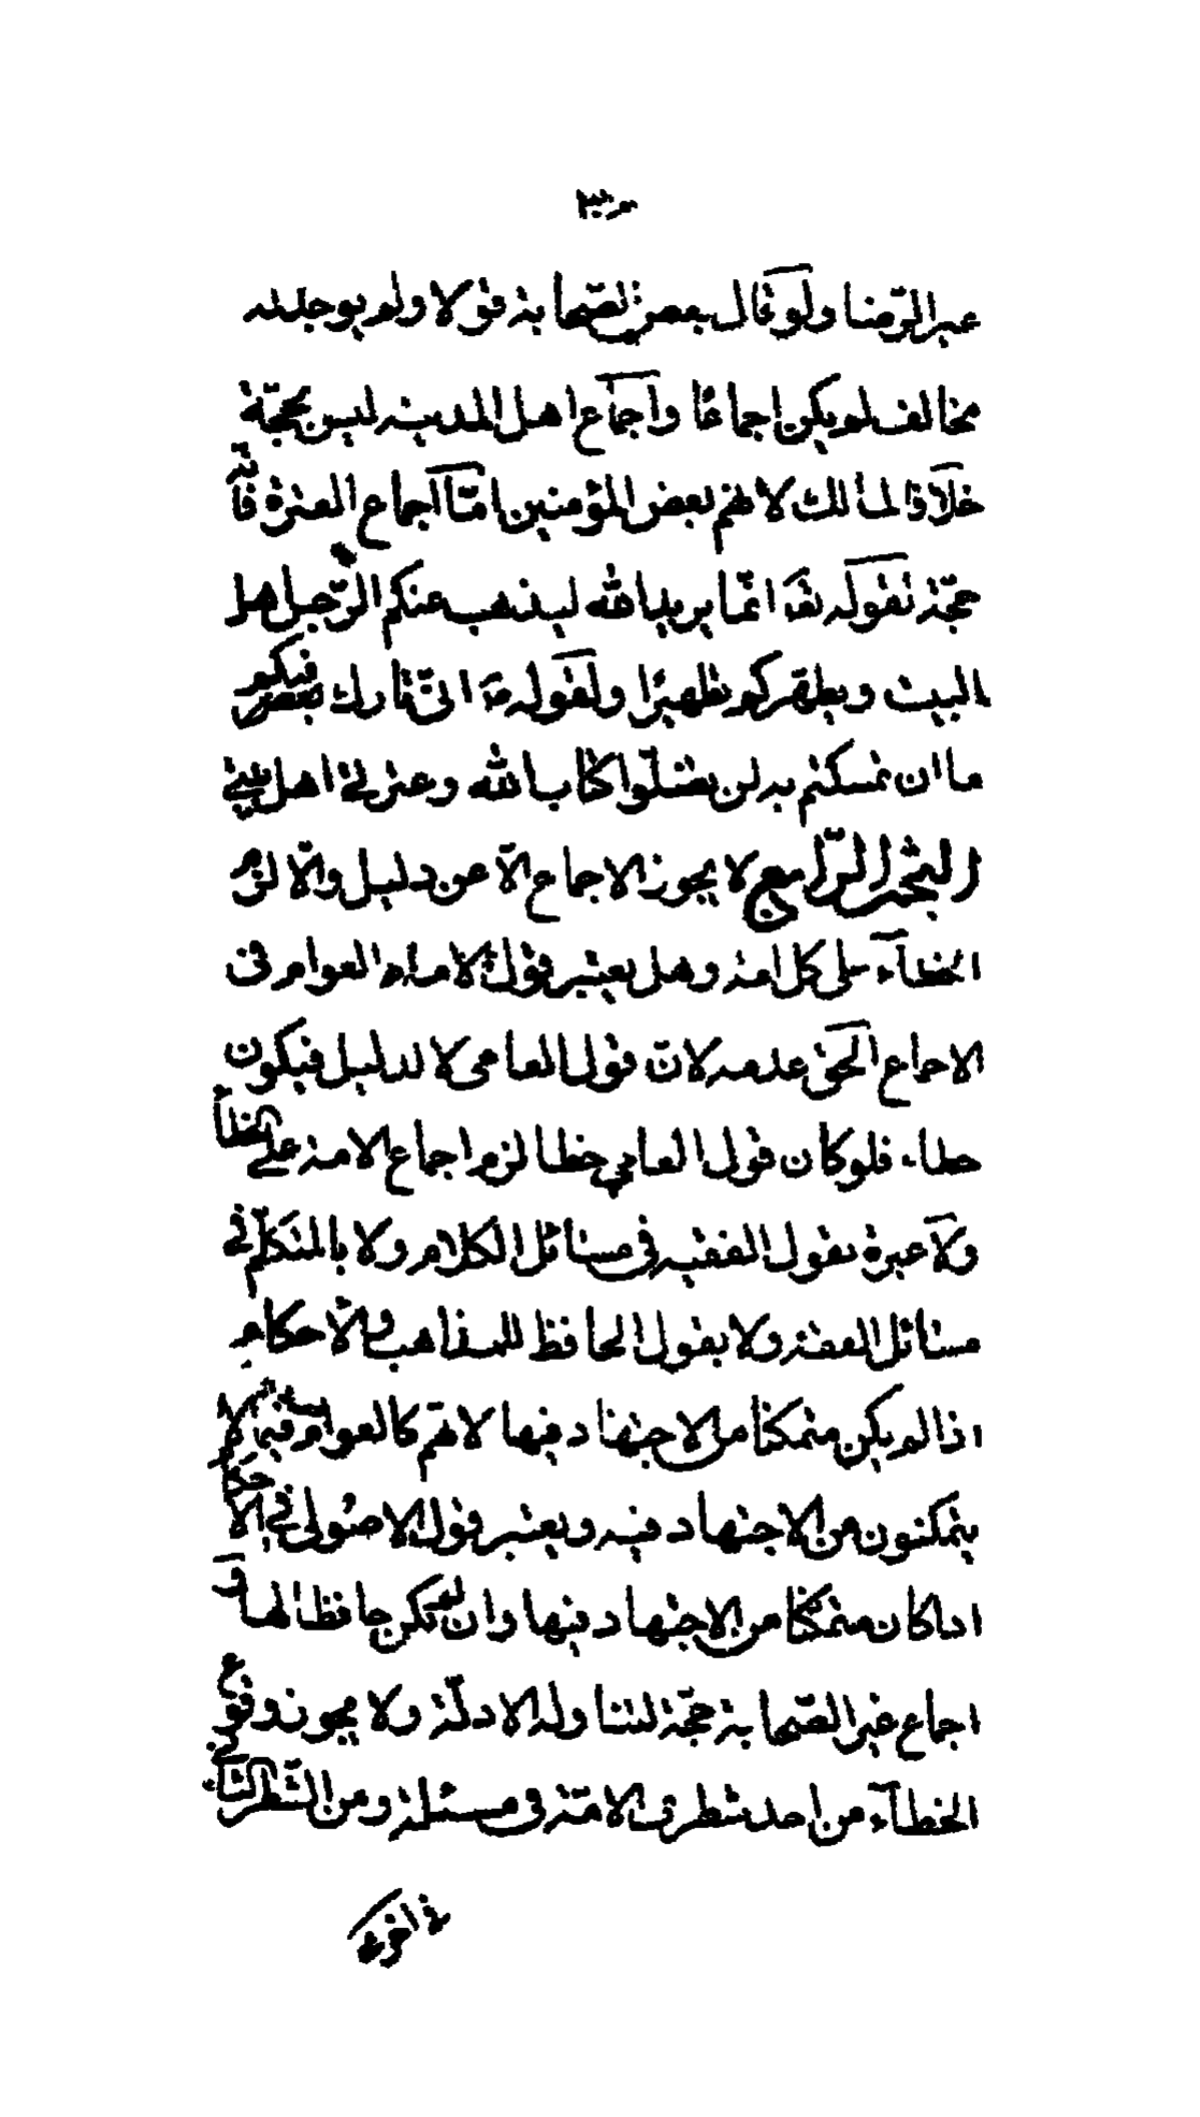 غير الرّضا ولو قال بعض الصّحابة قولا ولم يوجد له
مخالف لم يكن اجماعًا واجماع اهل المدينه ليس بحجّة
خلافا لمالك لانهم بعض المؤمنين امّا اجماع العترة فانّه
حجّة لقوله تعا انّما يريد الله ليذهب عنكم الرّجس اهل
البيت ويطهركم تطهيرًا ولقوله انّى تارك فيكم
ما ان تمسكتم به لن تضلّوا كتاب الله وعترتى اهل بيتى
البحث الرّابع لا يجوز الاجماع الّا عن دليل والّا لزم
الخطآء على كل الامة وهل يعتبر قول العوام فى
الاجماع الحق عدمه لانّ قول العامى لا لدليل فيكون
خطاء فلو كان قول العامي خطا لزم اجماع الامة على الخطأ
ولا عبرة بقول الفقيه فى مسائل الكلام ولا بالمتكلّم فى
مسائل الفقه ولا بقول الحافظ للمذاهب والاحكام
اذا لم يكن متمكنا من الاجتهاد فيها لانهم كالعوام فيما لا
يتمكنون من الاجتهاد فيه ويعتبر قول الاصولى فى الاحكام
اذا كان متمكنا من الاجتهاد فيها وان لم يكن حافظا لها و
اجماع غير الصّحابة حجّة لتناول الادلّة ولا يجوز وقوع
الخطآء من احد شطرى الامّة فى مسئلة ومن الشّطر الثانى
فى اخرى